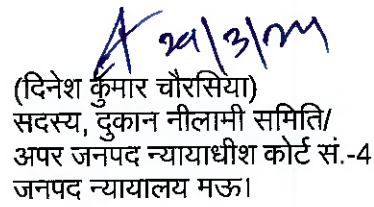 29/3/24
(दिनेश कुमार चौरसिया)
सदस्य, दुकान नीलामी समिति/
अपर जनपद न्यायाधीश कोर्ट सं.-4
जनपद न्यायालय मऊ।